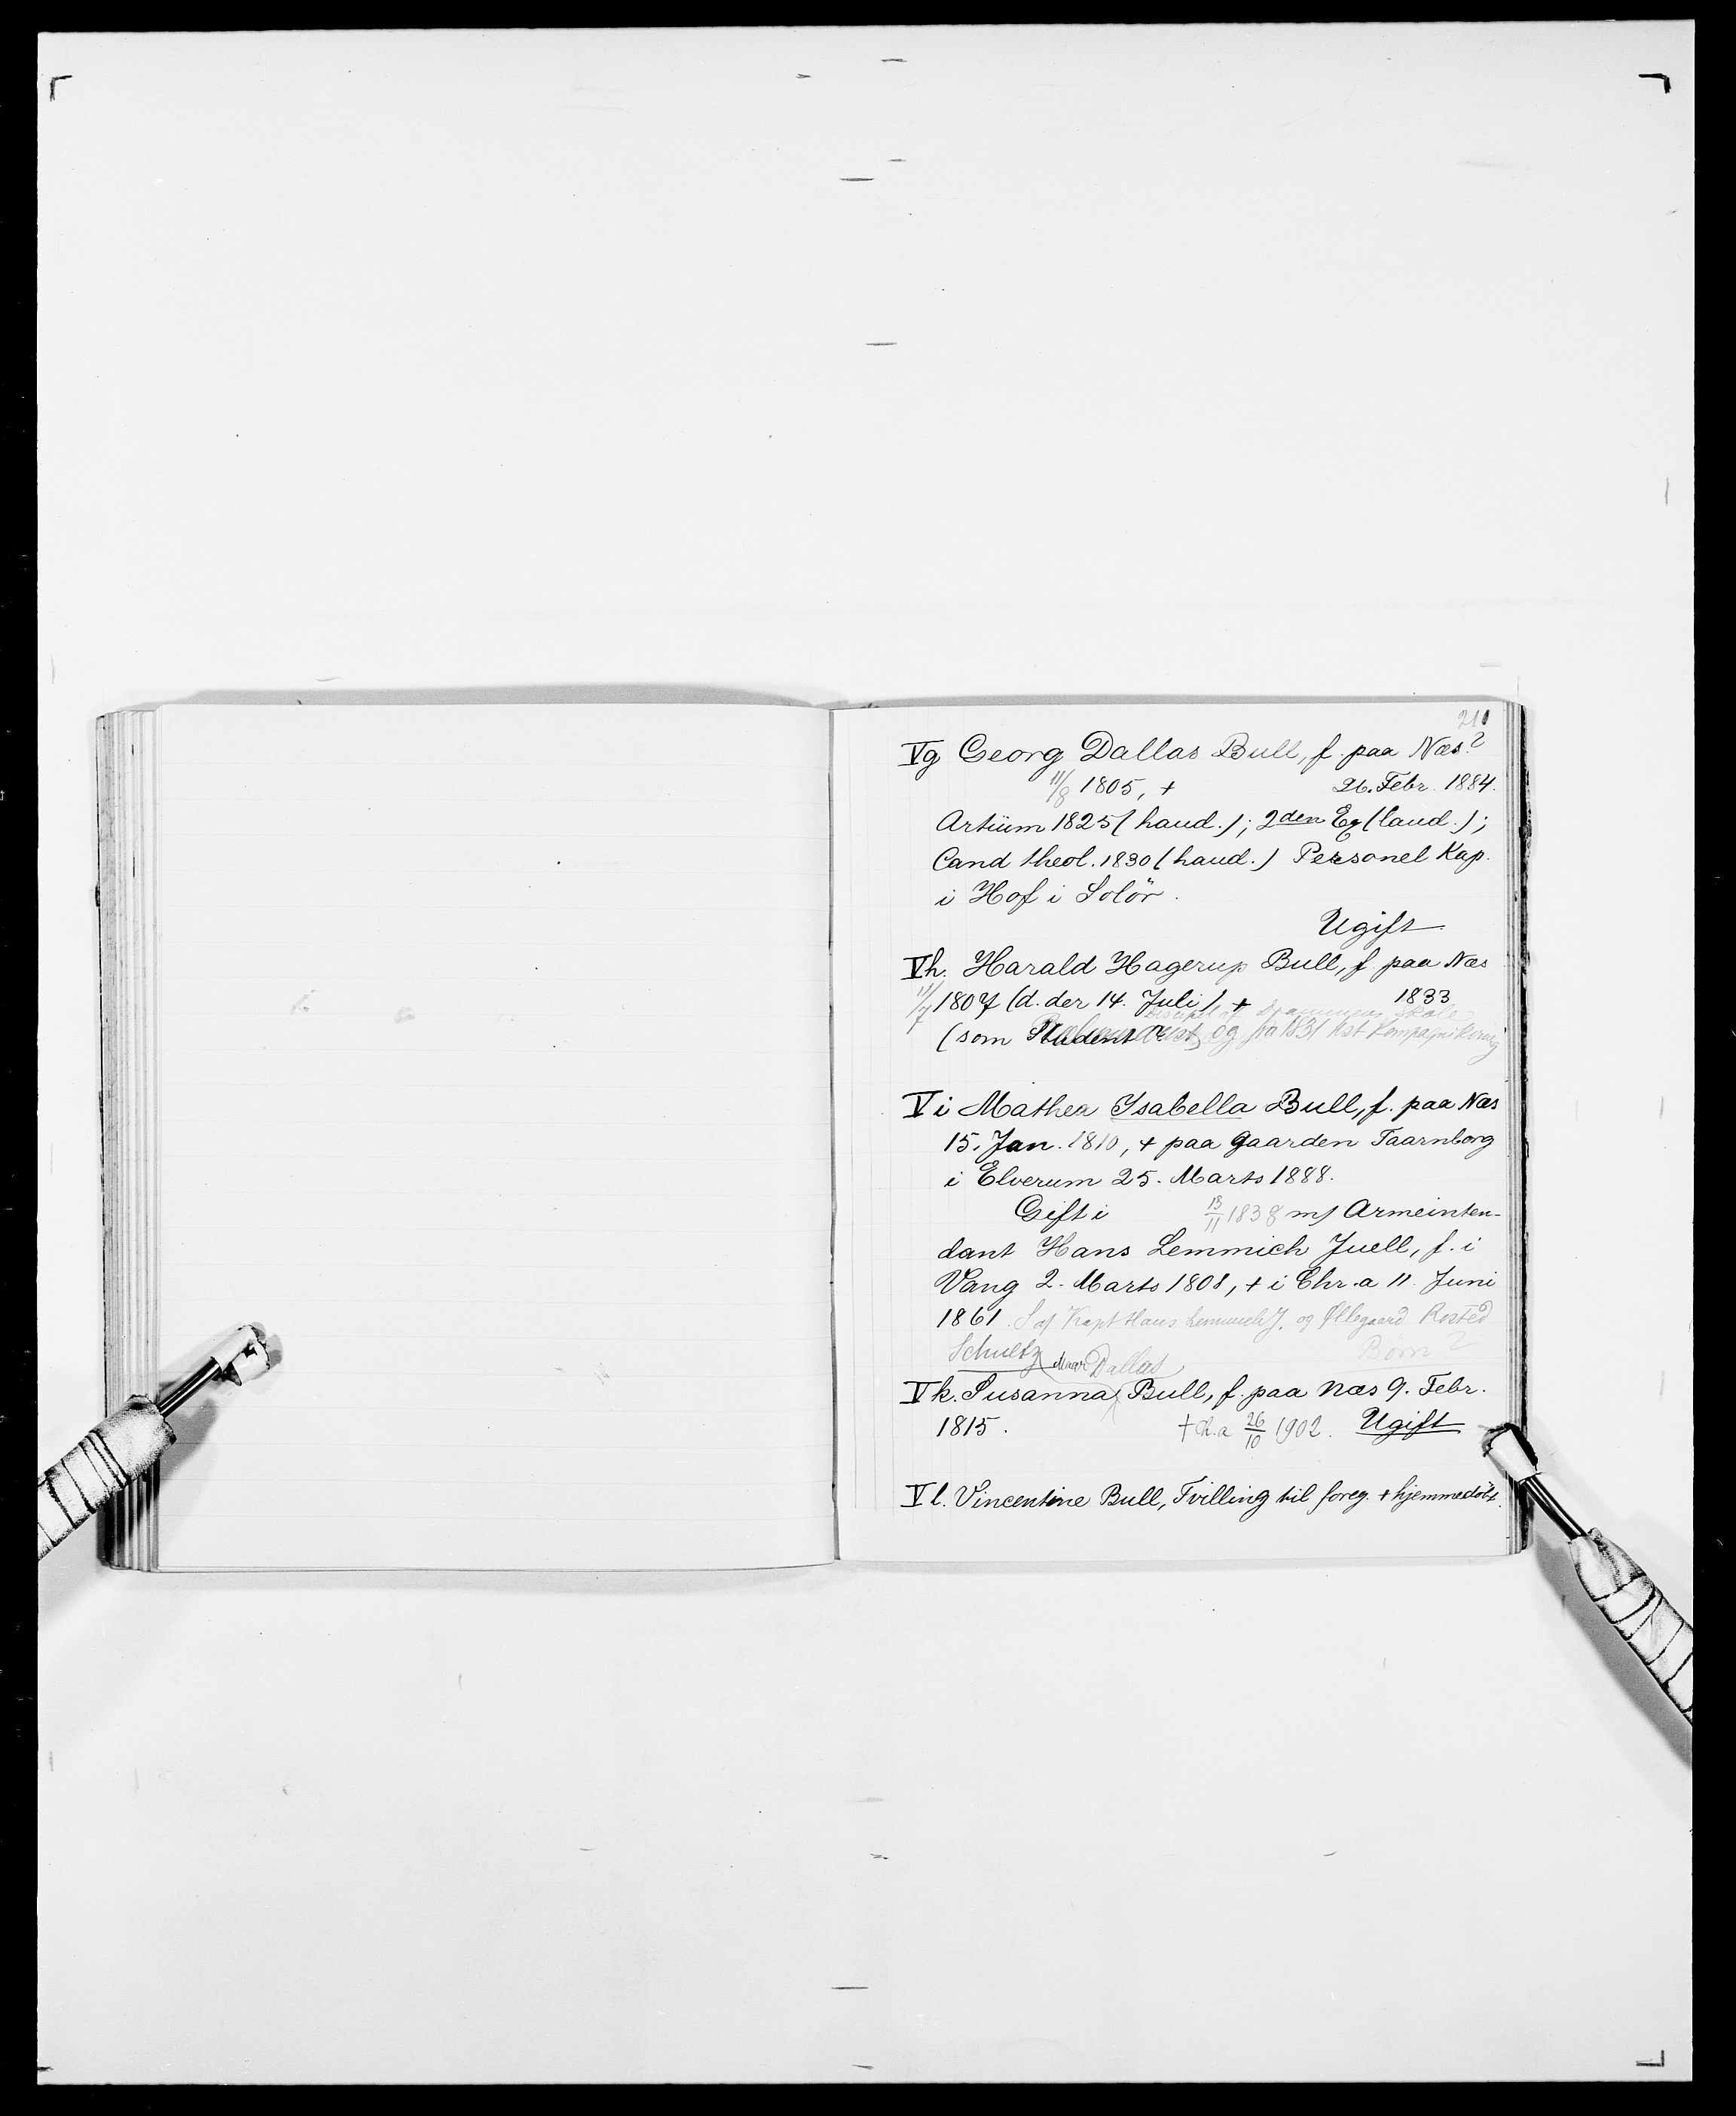 211
Vg Georg Dallas Bull, f. paa Næs?
11/8 1805, + 26. Febr. 1884.
Artium 1825 (haud.); 2den Ex (laud.);
Cand theol. 1830 (haud.) Personel Kap.
i Hof i Solör.
Ugift
Vh. Harald Hagerup Bull, f paa Næs
11/7 1807 (d. der 14. Juli), + 1833
Discipel af Skole
(som Student og fra 1831 Kst Kompagnikirurg
Vi Mathea Ysabella Bull, f. paa Næs
15. Jan. 1810, + paa Gaarden Taarnborg
i Elverum 25. Marts 1888.
Gift i 13/11 1838 m/ Armeinten-
dant Hans Lemmich Juell, f. i
Vang 2. Marts 1808, + i Chr.a 11. Juni
1861. S af Kapt Hans Lemmich J. og Øllegaard Rosted
Schultz Børn?
Marg. Dallas
Vk. Susanna Bull, f. paa Næs 9. Febr.
1815. + Ch.a 26/10 1902. Ugift
Vl. Vincentine Bull, Tvilling til foreg. + hjemmedöbt.